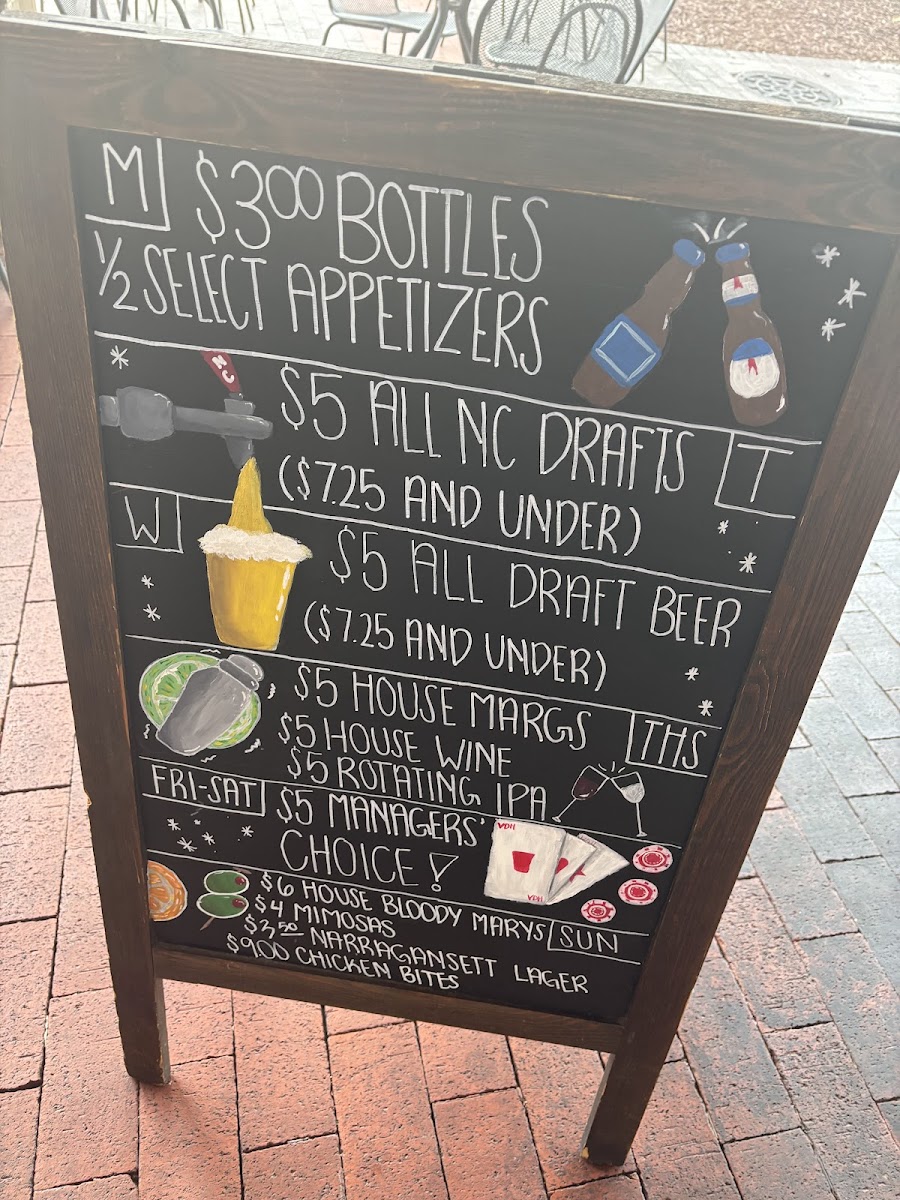 M
$3.00 BOTTLES
1/2 SELECT APPETIZERS
NC
$5 ALL NC DRAFTS
T
($7.25 AND UNDER)
W
$5 ALL DRAFT BEER
($7.25 AND UNDER)
$5 HOUSE MARGS
THS
$5 HOUSE WINE
$5 ROTATING IPA
FRI-SAT
$5 MANAGERS'
CHOICE!
VDH
VDH
VDH
$6 HOUSE BLOODY MARYS
SUN
$4 MIMOSAS
$3.50 NARRAGANSETT LAGER
$9.00 CHICKEN BITES